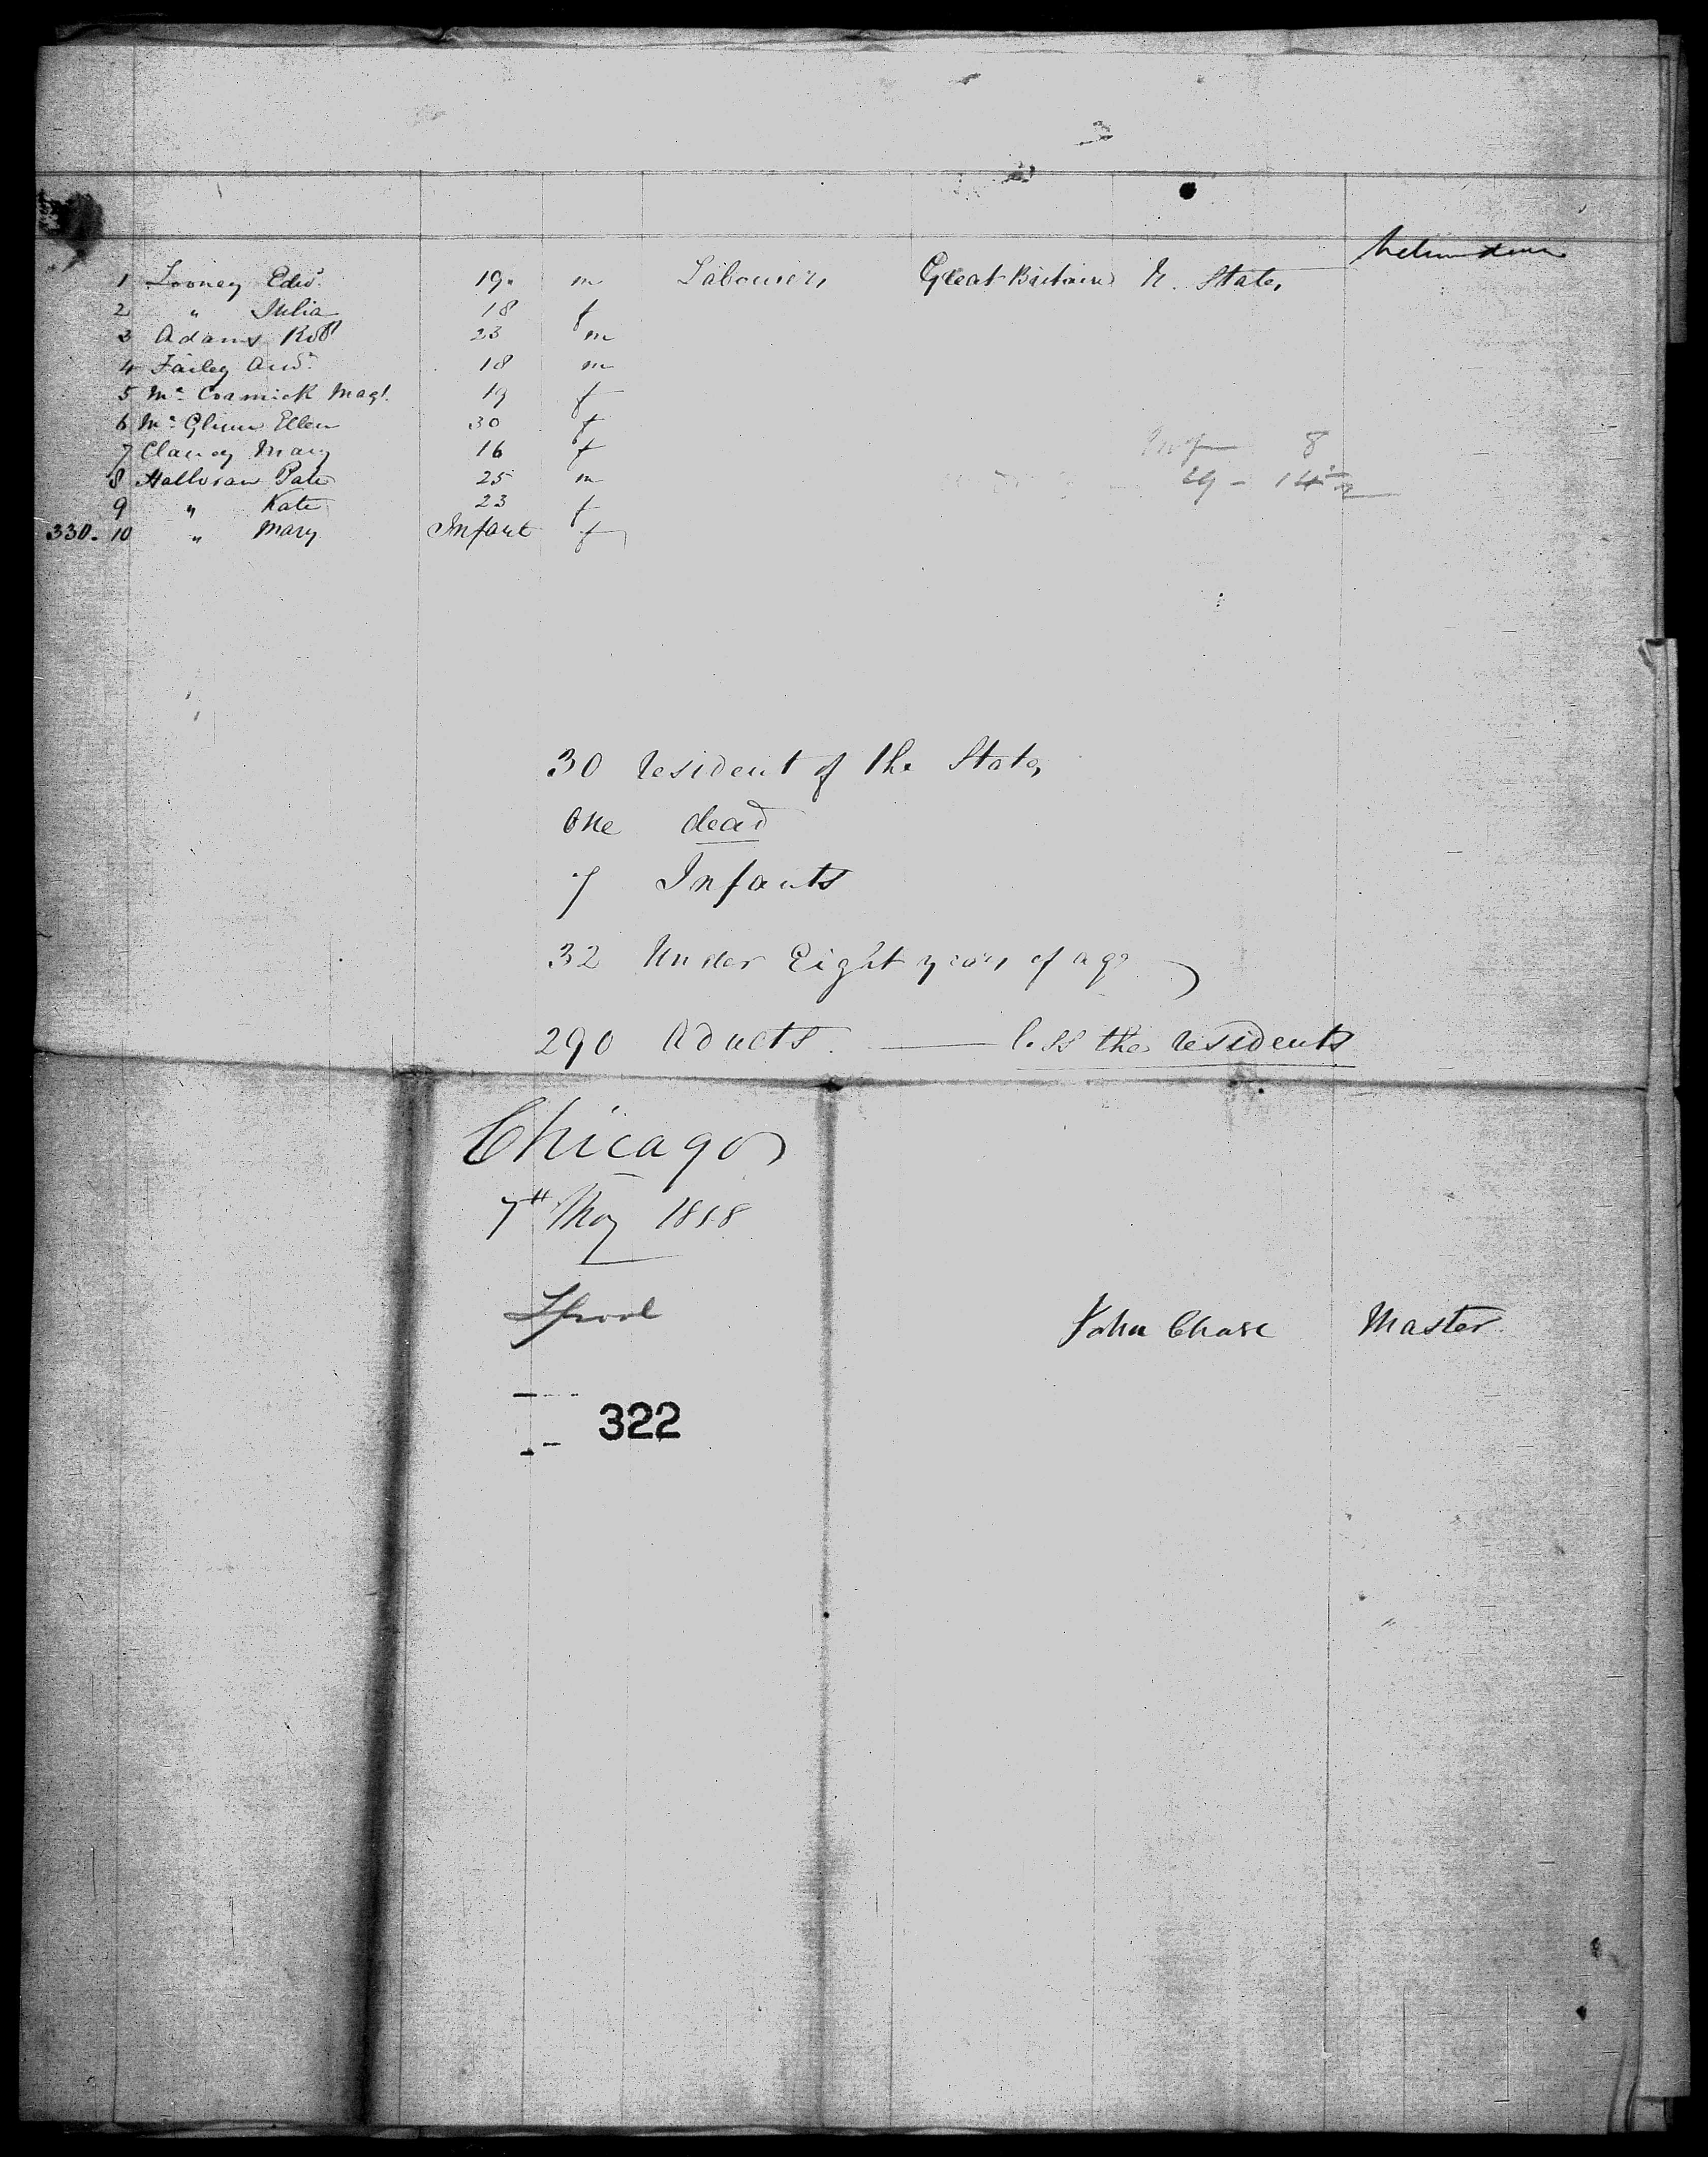 1 Looney Edwd. 19. m Labourers Great Britain U. States
2 " Julia 18 f
3 Adams Robt 23 m
4 Failey And. 18 m
5 Mc Cormick Magt. 19 f
6 Mc Glinn Ellen 30 f
7 Clancy Mary 16 f
8 Halloran Pate 25 m
9 " Kate 23 f
330. 10 " Mary Infant f
8
29 - 14
30 resident of the States
One dead
7 Infants
32 Under Eight years of age
290 Adults. less the residents
Chicago
7th May 1858
Lpool
John Chase Master
322